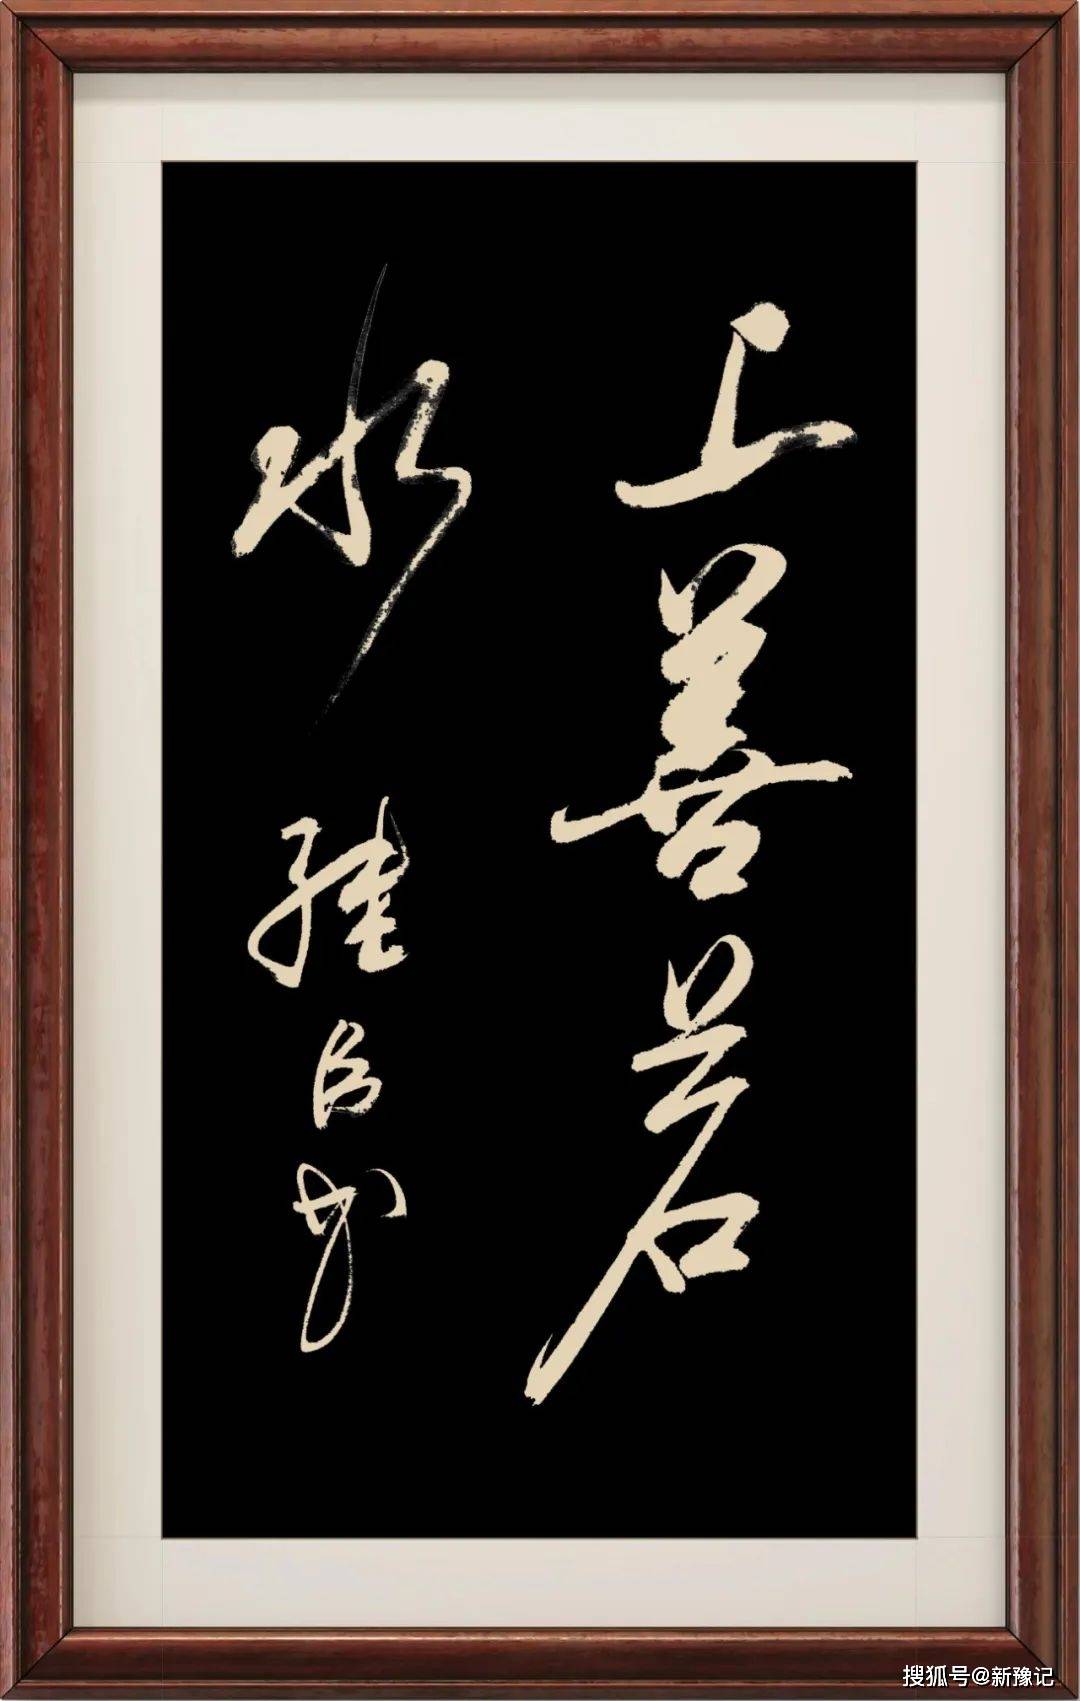 上善若
水
书
搜狐号@新豫记